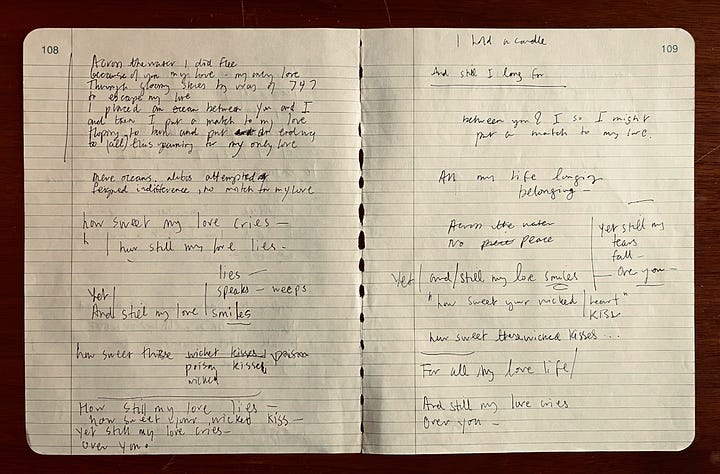 108
Across the water I did flee
because of you my love - my only love
Through gloomy skies by way of 747
to escape my love
I placed an ocean between you and I
and then I put a match to my love
Hoping to burn and put an ending
to (all) this yearning for my only love
mere oceans, alibis attempted
feigned indifference, no match for my love
how sweet my love cries —
h
how still my love lies -
lies —
speaks - weeps
Yet
And still my love smiles
how sweet those wicket kisses poison
poison kisses
wicked
How still my love lies —
how sweet your wicked kiss —
Yet still my love cries—
over you.
109
I hold a candle
And still I long for
between you & I so I might
put a match to my love.
All my life longing
belonging —
Across the water
No peace
yet still my
tears
fall -
over you —
Yet and/still my love smiles
"how sweet your wicked heart"
kiss
how sweet these wicked kisses ...
For all my love life/
And still my love cries
Over you —